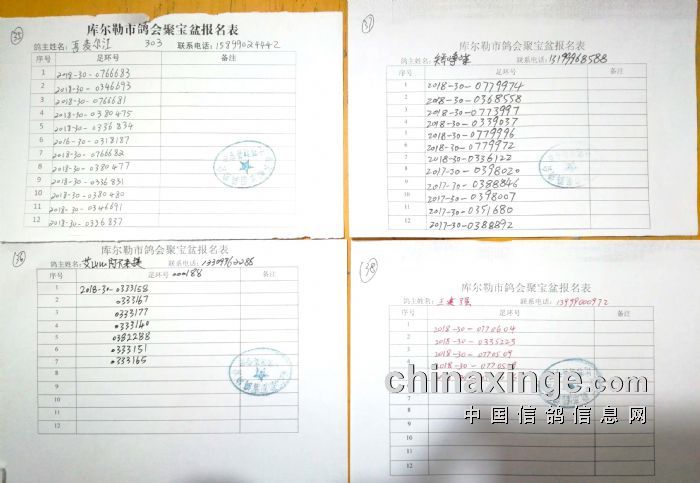 35
库尔勒市鸽会聚宝盆报名表
鸽主姓名: 303 联系电话: 15899024442
序号 足环号 备注
1 2018-30-0766683
2 2018-30-0346693
3 2018-30-0766681
4 2018-30-0380475
5 2018-30-0336834
6 2016-30-0318187
7 2018-30-0766682
8 2018-30-0380477
9 2018-30-0336831
10 2018-30-0380480
11 2018-30-0346691
12 2018-30-0336837
37
库尔勒市鸽会聚宝盆报名表
鸽主姓名: 联系电话: 13199968588
序号 足环号 备注
1 2018-30-0779974
2 2018-30-0368558
3 2018-30-0773997
4 2018-30-0339037
5 2018-30-0779996
6 2018-30-0779972
7 2018-30-0336122
8 2017-30-0398020
9 2017-30-0388846
10 2017-30-0398007
11 2017-30-0351680
12 2017-30-0388892
36
库尔勒市鸽会聚宝盆报名表
鸽主姓名: 联系电话: 13309962286
序号 足环号 000188 备注
1 2018-30-0333158
2 0333167
3 0333177
4 0333140
5 0382288
6 0333151
7 0333165
8
9
10
11
12
38
库尔勒市鸽会聚宝盆报名表
鸽主姓名: 王建强 联系电话: 13999000972
序号 足环号 备注
1 2018-30-0770604
2 2018-30-0335225
3 2018-30-0770509
4 2018-30-07705
chinaxinge.com
中国信鸽信息网